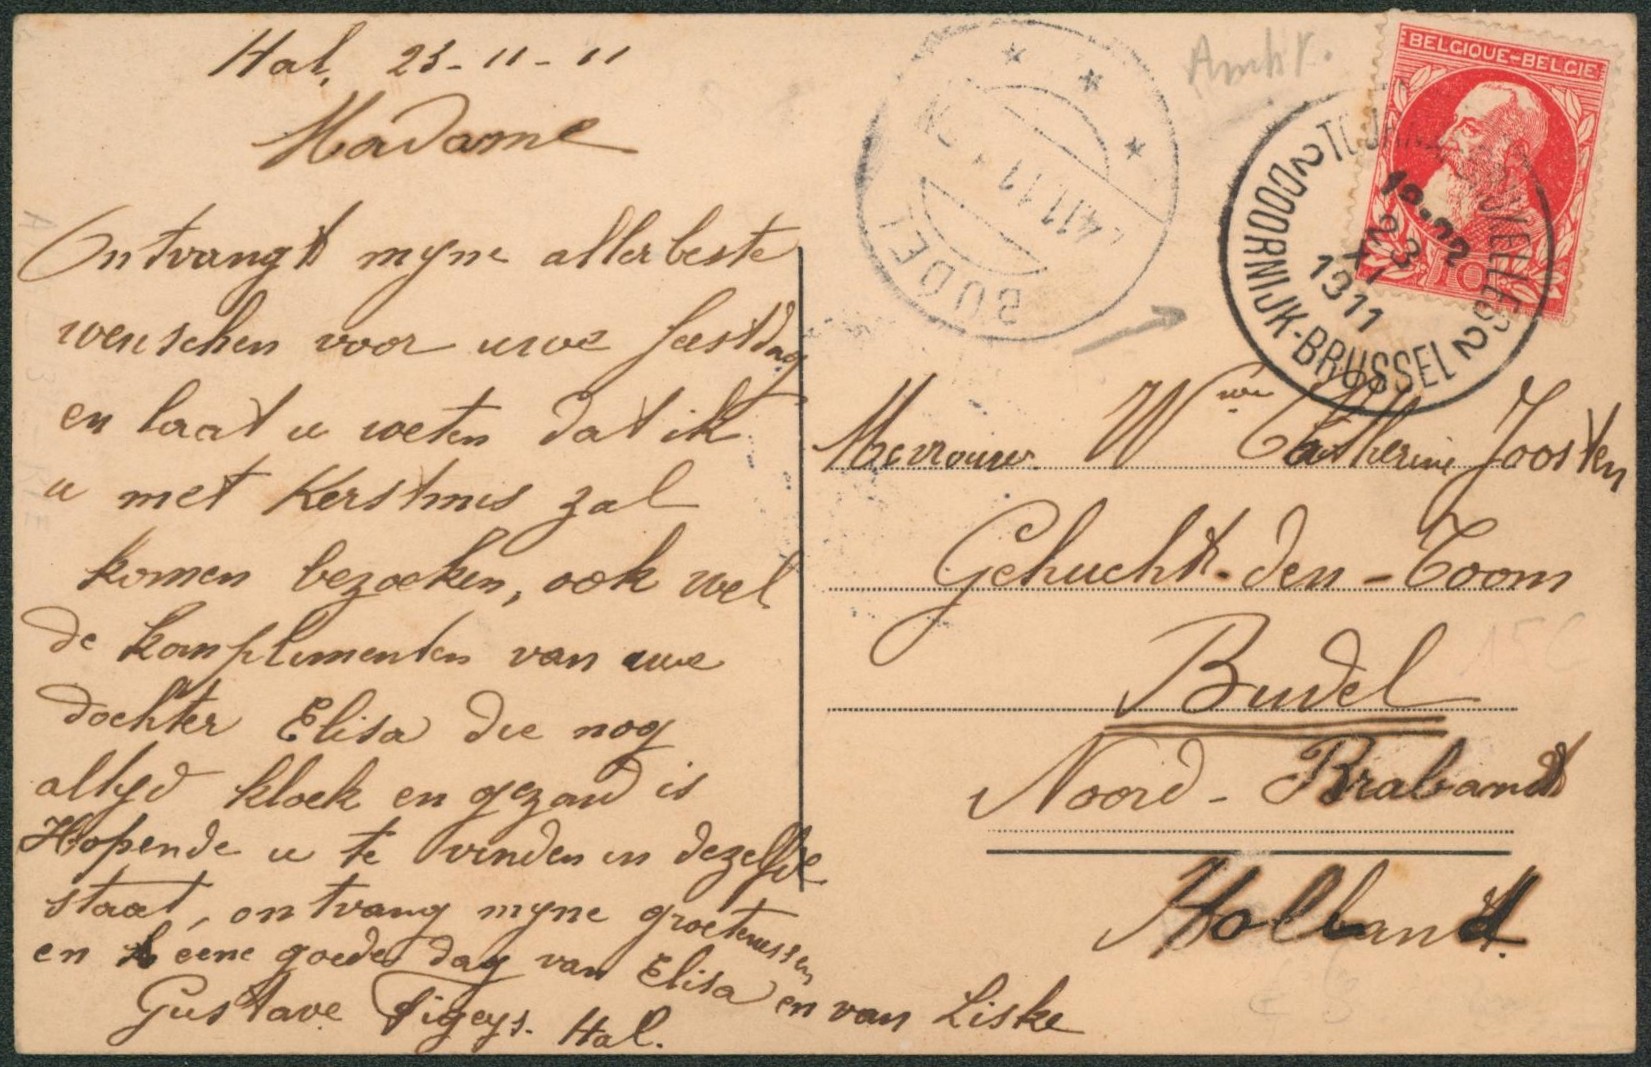 Hal, 23-11-11
Madame
Ontvangt myne allerbeste
wenschen voor uwe feestdag
en laat u weten dat ik
u met Kerstmis zal
komen bezoeken, ook wel
de komplimenten van uwe
dochter Elisa die nog
altyd kloek en gezond is
Hopende u te vinden in dezelfde
staat, ontvang myne groetenissen
en eene goede dag van Elisa en van Liske
Gustave Figeys. Hal.
BUDEL
24.11.11
Amb.
BELGIQUE-BELGIE
10
2 DOORNIJK-BRUSSEL 2
TOURNAI-BRUXELLES
23
XI
1911
Mevrouw Wwe Catherine Joosten
Gehucht-den-Toom
Budel
Noord-Brabandt
Holland
15C